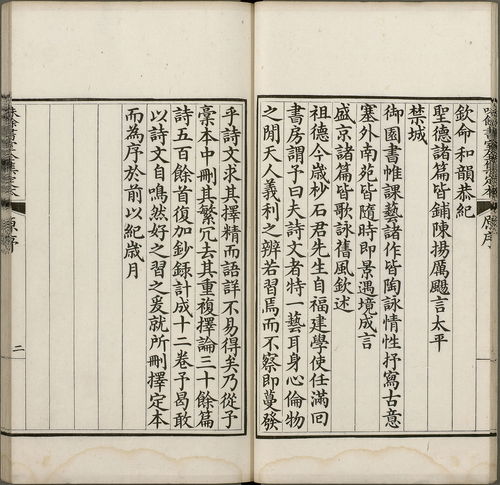 欽命和韻恭紀
聖德諸篇皆鋪陳揚厲颺言太平
禁城
御園書帷課藝諸作皆陶詠情性抒寫古意
塞外南苑皆隨時即景遇境成言
盛京諸篇皆歌詠舊風欽述
祖德今歲杪石君先生自福建學使任滿回
書房謂予曰夫詩文者特一藝耳身心倫物
之閒天人義利之辨若習焉而不察即蔓發
原序
乎詩文求其擇精而語詳不易得矣乃從予
稾本中刪其繁冗去其重複擇論三十餘篇
詩五百餘首復加鈔錄計成十二卷予曷敢
以詩文自鳴然好之習之爰就所刪擇定本
而為序於前以紀歲月
原序
二